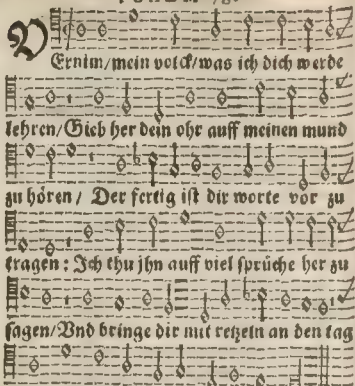 VErnim/mein volck/was ich dich werde
lehren/Gieb her dein ohr auff meinen mund
zu hören / Der fertig ist dir worte vor zu
tragen : Ich thu jhn auff viel sprüche her zu
sagen/Vnd bringe dir mit retzeln an den tag